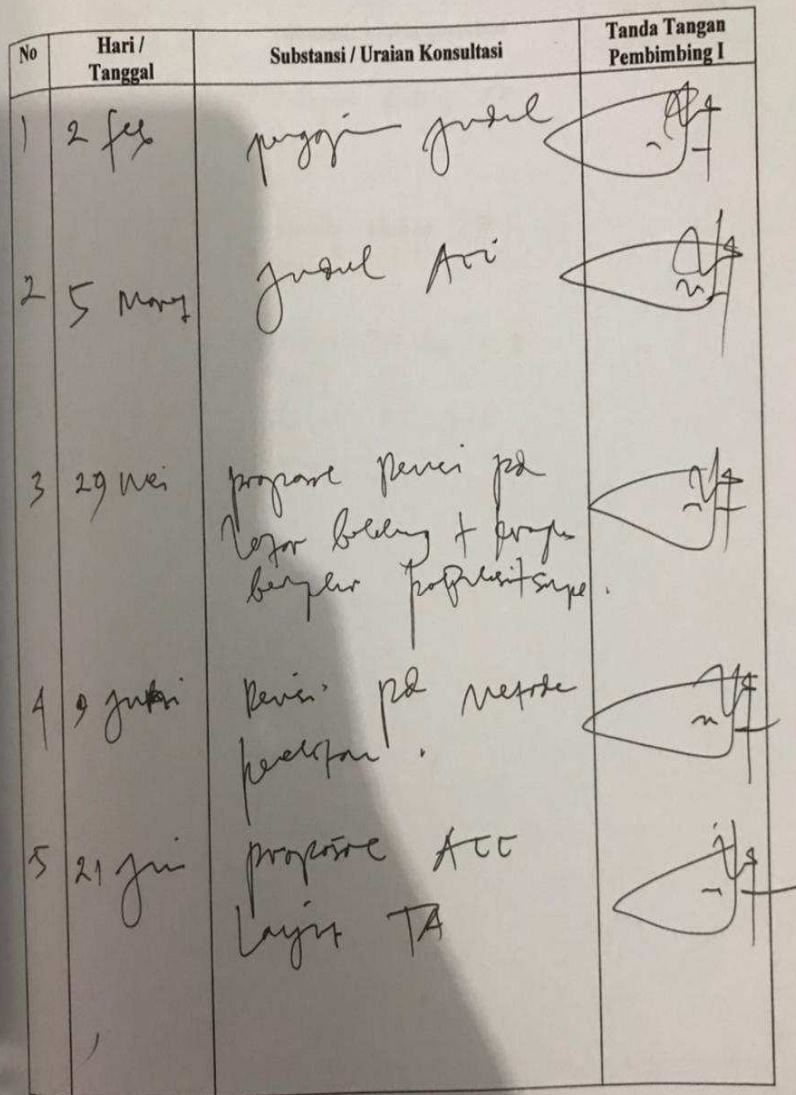 No Hari / Tanggal Substansi / Uraian Konsultasi Tanda Tangan Pembimbing I
1 2 feb judul
2 5 Maret judul Acc
3 29 Mei propose revisi pd
latar belakang +
4 9 Juni Revisi pd metode
penelitian.
5 21 Juni propose ACC
Lanjut TA